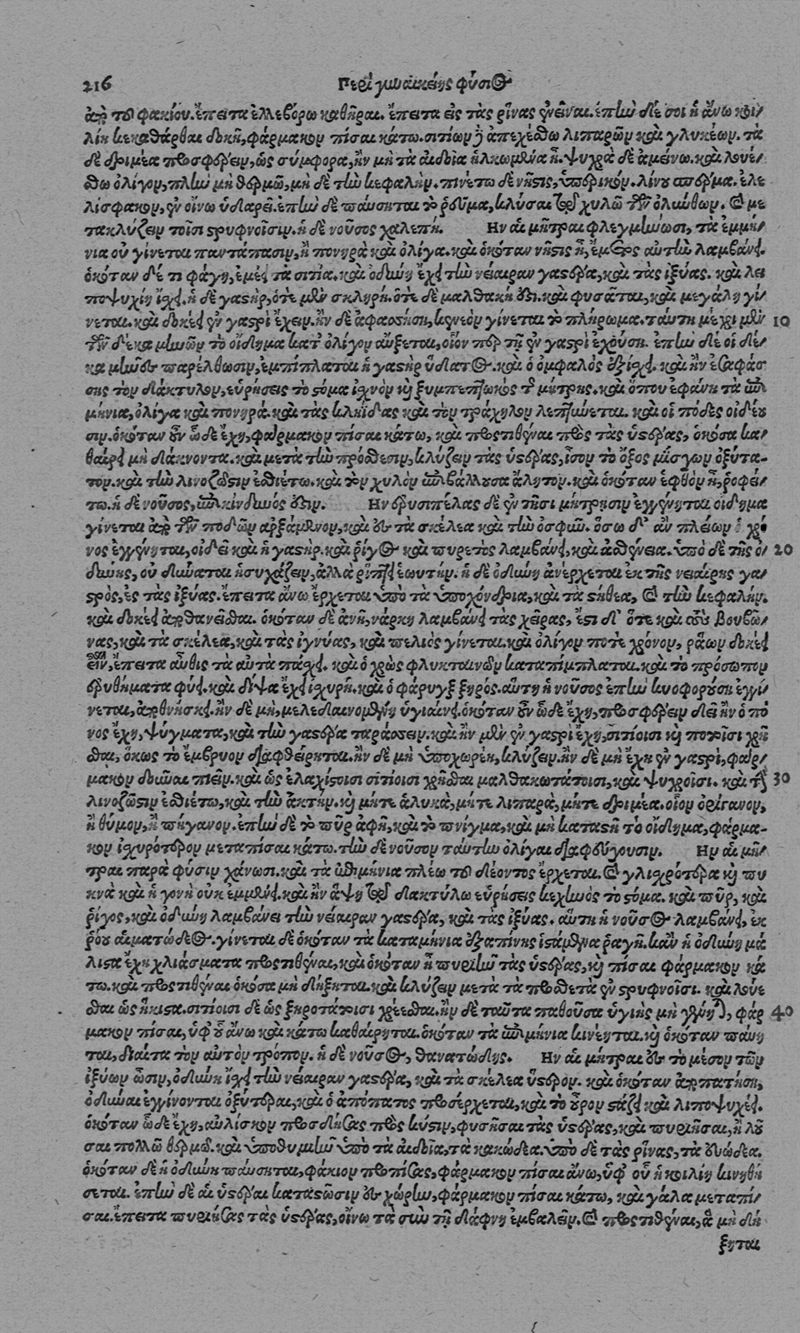 216 Περὶ γυναικείης φύσιος
ἀπὸ τοῦ φακίου. ἔπειτα ἐλλεβόρω καθῆραι. ἔπειτα ἐς τὰς ῥῖνας ἐνεῖναι. ἐπὴν δέ σοι ἡ ἄνω κοι/
λίη κεκαθάρθαι δοκῇ, φάρμακον πῖσαι κάτω. σιτίων δὲ ἀπεχέσθω λιπαρῶν καὶ γλυκέων. τὰ
δὲ δριμέα προσφέρειν, ὡς σύμφορα, ἢν μὴ τὰ αἰδοῖα ἡλκωμένα ᾖ. ψυχρὰ δὲ ἀμείνω. καὶ λουέ/
σθω ὀλίγον, πλὴν μὴ θερμῶ, μὴ δὲ τὴν κεφαλήν. πινέτω δὲ νῆστις, ὑπερικόν. λίνου σπέρμα. ἐλε
λίσφακον, ἐν οἴνω ὑδαρεῖ. ἐπὴν δὲ παύσηται τὸ ῥεῦμα, κλύσαι τῷ χυλῶ τῶν ὀλύνθων. καὶ με
τακλύζειν τοῖσι στρυφνοῖσιν. ἡ δὲ νοῦσος χαλεπή. Ην αἱ μῆτραι φλεγμήνωσι, τὰ ἐμμή/
νια οὐ γίνεται παντάπασιν, ἢ πονηρὰ καὶ ὀλίγα. καὶ ὁκόταν νῆστις ᾖ, ἔμετος αὐτὴν λαμβάνει.
ὁκόταν δέ τι φάγη, ἐμέει τὰ σιτία. καὶ ὀδύνη ἔχει τὴν νείαιραν γαστέρα, καὶ τὰς ἰξύας. καὶ λει
ποψυχίη ἴσχει. ἡ δὲ γαστὴρ, ὁτὲ μὲν σκληρὴ. ὁτὲ δὲ μαλθακὴ ἐστι. καὶ φυσᾶται, καὶ μεγάλη γί/
νεται. καὶ δοκέει ἐν γαστρὶ ἔχειν. ἢν δὲ ἀφάσσησι, κενεὸν γίνεται τὸ πλήρωμα. ταύτη μέχρι μὲν 10
τῶν δέκα μηνῶν τὸ οἴδημα κατ' ὀλίγον αὔξεται, οἷον περ τῇ ἐν γαστρὶ ἐχούσῃ. ἐπὴν δὲ οἱ δέ/
κα μῆνες παρέλθωσιν, ἐμπίπλαται ἡ γαστὴρ ὕδατος. καὶ ὁ ὀμφαλὸς ἐξίσχει. καὶ ἢν ἐσαφάσ
σῃς τὸν δάκτυλον, εὑρήσεις τὸ στόμα ἰσχνὸν καὶ ξυμπεπτωκὸς τῆς μήτρης. καὶ ὅπου ἐφάνη τὰ ἐπι
μήνια, ὀλίγα καὶ πονηρά. καὶ τὰς κληΐδας καὶ τὸν τράχηλον λεπτύνεται. καὶ οἱ πόδες οἰδέου
σιν. ὁκόταν οὖν ὧδε ἔχῃ, φάρμακον πῖσαι κάτω, καὶ προστιθέναι πρὸς τὰς ὑστέρας, ὁκόσα κα/
θαίρει μὴ δάκνοντα. καὶ μετὰ τὴν πρόσθεσιν, κλύζειν τὰς ὑστέρας, ἴσον τὸ ὄξος μίσγων ὀξύτα-
τον. καὶ τὴν λινόζωστιν ἐσθιέτω. καὶ τὸν χυλὸν ἐπιβάλλουσα ἄλητον. καὶ ὁκόταν ἑφθὸν ᾖ, ῥοφεί/
τω. ἡ δὲ νοῦσος, ἐπικίνδυνός ἐστιν. Ην ἐρυσιπέλας δὲ ἐν τῇσι μήτρῃσιν ἐγγένηται οἴδημα
γίνεται ἀπὸ τῶν ποδῶν ἀρξάμενον, καὶ ἐς τὰ σκέλεα καὶ τὴν ὀσφῦν. ὅσω δ' ἂν πλείων ὁ χρό
νος ἐγγένηται, οἰδέει καὶ ἡ γαστήρ. καὶ ῥῖγος καὶ πυρετὸς λαμβάνει, καὶ ἀσθένεια. ὑπὸ δὲ τῆς ὀ/ 20
δύνης, οὐ δύναται ἡσυχάζειν, ἀλλὰ ῥιπτέει ἑωυτήν. ἡ δὲ ὀδύνη ἀνέρχεται ἐκ τῆς νειαίρης γα/
στρὸς, ἐς τὰς ἰξύας. ἔπειτα ἄνω ἔρχεται ὑπὸ τὰ ὑποχόνδρια, καὶ τὰ στήθεα, καὶ τὴν κεφαλήν.
καὶ δοκέει ἀποθανεῖσθαι. ὁκόταν δὲ ἀνῇ, νάρκη λαμβάνει τὰς χεῖρας, ἔστι δ' ὅτε καὶ τοὺς βουβῶ/
νας, καὶ τὰ σκέλεα, καὶ τὰς ἰγνύας, καὶ πελιὸς γίνεται. καὶ ὀλίγον ποτὲ χρόνον, ῥάων δοκέει
εἶν, ἔπειτα αὖθις τὰ αὐτὰ πάσχει. καὶ ὁ χρὼς φλυκταινέων καταπίμπλαται. καὶ τὸ πρόσωπον
ἐρυθήματα φύει. καὶ δίψα ἔχει ἰσχυρή. καὶ ὁ φάρυγξ ξηρός. αὕτη ἡ νοῦσος ἐπὴν κυοφορούσῃ ἐγγί/
νεται, ἀποθνήσκει. ἢν δὲ μὴ, μελεδαινομένη ὑγιαίνει. ὁκόταν οὖν ὧδε ἔχῃ, προσφέρειν δεῖ ἢν ὁ πό
νος ἔχῃ, ψύγματα, καὶ τὴν γαστέρα ταράσσειν. καὶ ἢν μὲν ἐν γαστρὶ ἔχῃ, σιτίοισι καὶ ποτοῖσι χρῆ
σθαι, ὅκως τὸ ἔμβρυον διαφθείρηται. ἢν δὲ μὴ ὑποχωρέῃ, κλύζειν. ἢν δὲ μὴ ἔχῃ ἐν γαστρὶ, φάρ/
μακον δοῦναι πιεῖν. καὶ ὡς ἐλαχίστοισι σιτίοισι χρῆσθαι μαλθακωτάτοισι, καὶ ψυχροῖσι. καὶ τῇ 30
λινοζώστιν ἐσθιέτω, καὶ τὴν ἀκτήν. καὶ μήτε ἁλυκὰ, μήτε λιπαρὰ, μήτε δριμέα. οἷον ὀρίγανον,
ἢ θύμον, ἢ πήγανον. ἐπὴν δὲ τὸ πῦρ ἀφῇ, καὶ τὸ πνίγμα, καὶ μὴ καταστῇ τὸ οἴδημα, φάρμα-
κον ἰσχυρότερον μεταπῖσαι κάτω. τὴν δὲ νοῦσον ταύτην ὀλίγαι διαφεύγουσιν. Ην αἱ μῆ/
τραι παρὰ φύσιν χάνωσι. καὶ τὰ ἐπιμήνια πλέω τοῦ δέοντος ἔρχεται. καὶ γλισχρότερα καὶ πυ
κνὰ καὶ ἡ γονὴ οὐκ ἐμμένει. καὶ ἢν ἅψῃ τῷ δακτύλω εὑρήσεις κεχηνὸς τὸ στόμα. καὶ πῦρ, καὶ
ῥῖγος, καὶ ὀδύνη λαμβάνει τὴν νείαιραν γαστέρα, καὶ τὰς ἰξύας. αὕτη ἡ νοῦσος λαμβάνει, ἐκ
ῥόου αἱματώδεος. γίνεται δὲ ὁκόταν τὰ καταμήνια ἐξαπίνης ἱστάμενα ῥαγῇ. κἢν ἡ ὀδύνη μά
λιστα ἔχῃ χλιάσματα προστιθέναι, καὶ ὁκόταν ᾖ πυριῆν τὰς ὑστέρας, καὶ πῖσαι φάρμακον κά
τω. καὶ προστιθέναι ὁκόσα μὴ δήξηται. καὶ κλύζειν μετὰ τὰ προσθετὰ ἐν στρυφνοῖσι. καὶ λούε
σθαι ὡς ἥκιστα. σιτίοισι δὲ ὡς ξηροτάτοισι χρέεσθαι. ἢν δὲ ταῦτα παθοῦσα ὑγιὴς μὴ γένηται, φάρ 40
μακον πῖσαι, ὑφ' οὗ ἄνω καὶ κάτω καθαίρηται. ὁκόταν τὰ ἐπιμήνια κινέηται. καὶ ὁκόταν παύη
ται, δίαιτα τὸν αὐτὸν τρόπον. ἡ δὲ νοῦσος, θανατώδης. Ην αἱ μῆτραι ἐς τὸ μέσον τῶν
ἰξύων ὦσιν, ὀδύνη ἴσχει τὴν νείαιραν γαστέρα, καὶ τὰ σκέλεα ὕστερον. καὶ ὁκόταν ἀποπατήσῃ,
ὀδύναι ἐγγίνονται ὀξύτεραι, καὶ ὁ ἀπόπατος προσέρχεται, καὶ τὸ οὖρον στάζει καὶ λιποψυχέει.
ὁκόταν ὧδε ἔχῃ, αὐλίσκον προσδήσας πρὸς κύστιν, φυσῆσαι τὰς ὑστέρας, καὶ πυριῆσαι, ἢ λοῦ
σαι πολλῶ θερμῶ. καὶ ὑποθυμιῆν ὑπὸ τὰ αἰδοῖα, τὰ κακώδεα. ὑπὸ δὲ τὰς ῥῖνας, τὰ εὐώδεα.
ὁκόταν δὲ ἡ ὀδύνη παύσηται, φάκιον προπίσας, φάρμακον πῖσαι ἄνω, ὑφ' οὗ ἡ κοιλίη κινηθή
σεται. ἐπὴν δὲ αἱ ὑστέραι καταστῶσιν ἐς χώρην, φάρμακον πῖσαι κάτω, καὶ γάλα μεταπῖ/
σαι. ἔπειτα πυριήσας τὰς ὑστέρας, οἴνω τὰ σὺν τῇ δάφνῃ ἐμβαλεῖν. καὶ προστιθέναι, ἃ μὴ δή
ξηται